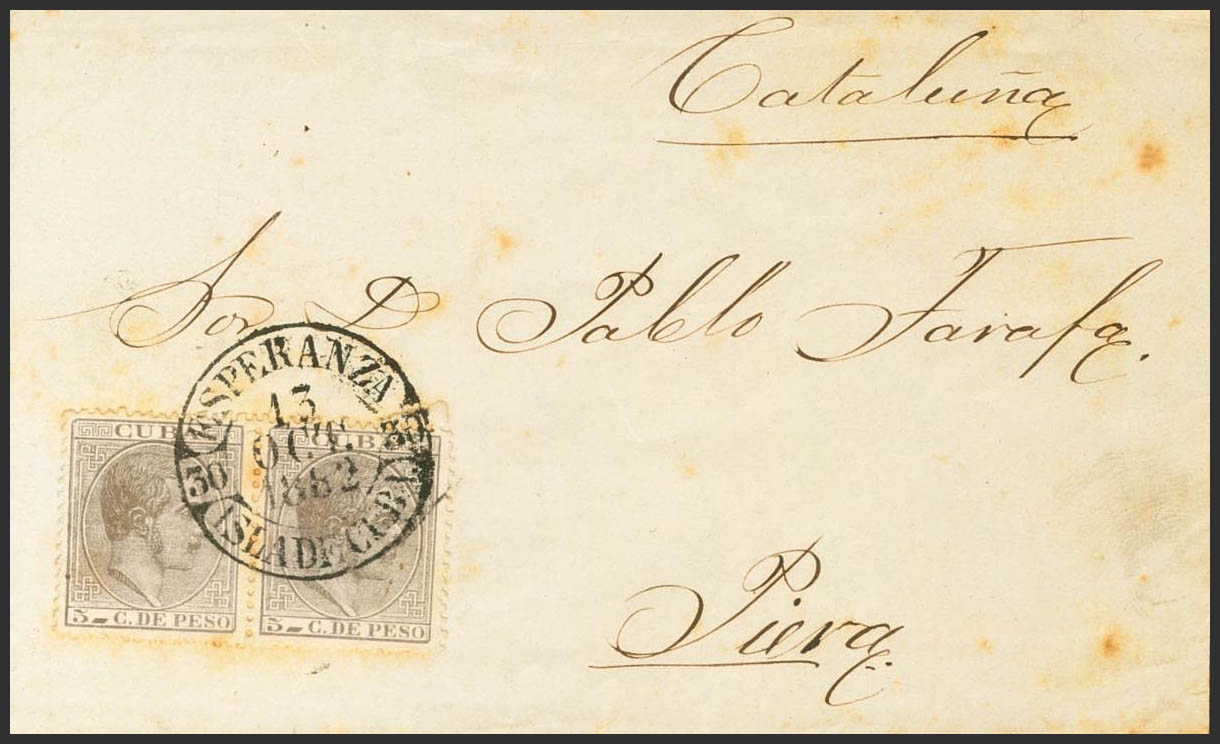 Cataluña
Sor D Pablo Farafa.
ESPERANZA
13
OCT.
1882
30
30
ISLA DE CUBA
CUBA
CUBA
5 C. DE PESO
5 C. DE PESO
Piera